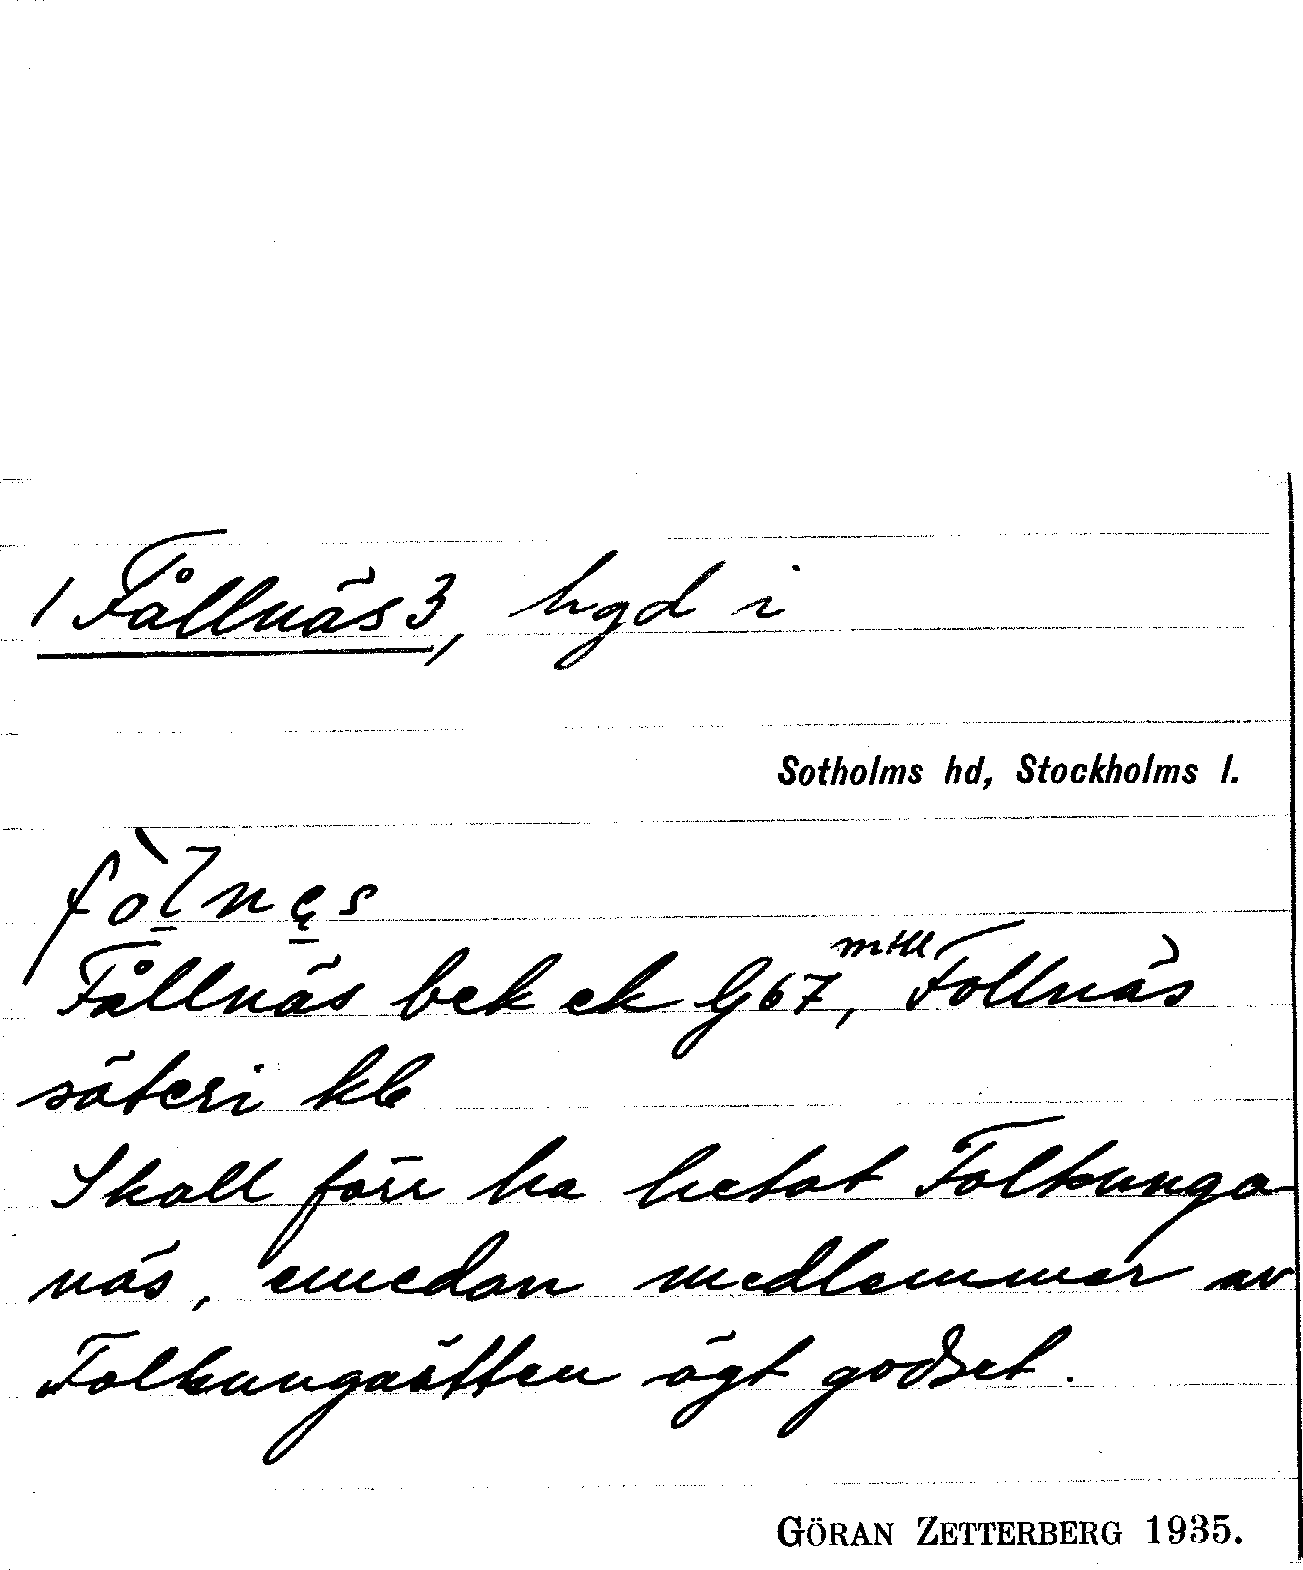 1 Fållnäs 3, hgd i
Sotholms hd, Stockholms l.
fòlnęs
mtll
Fållnäs bek ek G67, Follnäs
säteri kb
Skall förr ha hetat Folkunga-
näs, emedan medlemmar av
Folkungaätten ägt godset.
GÖRAN ZETTERBERG 1935.